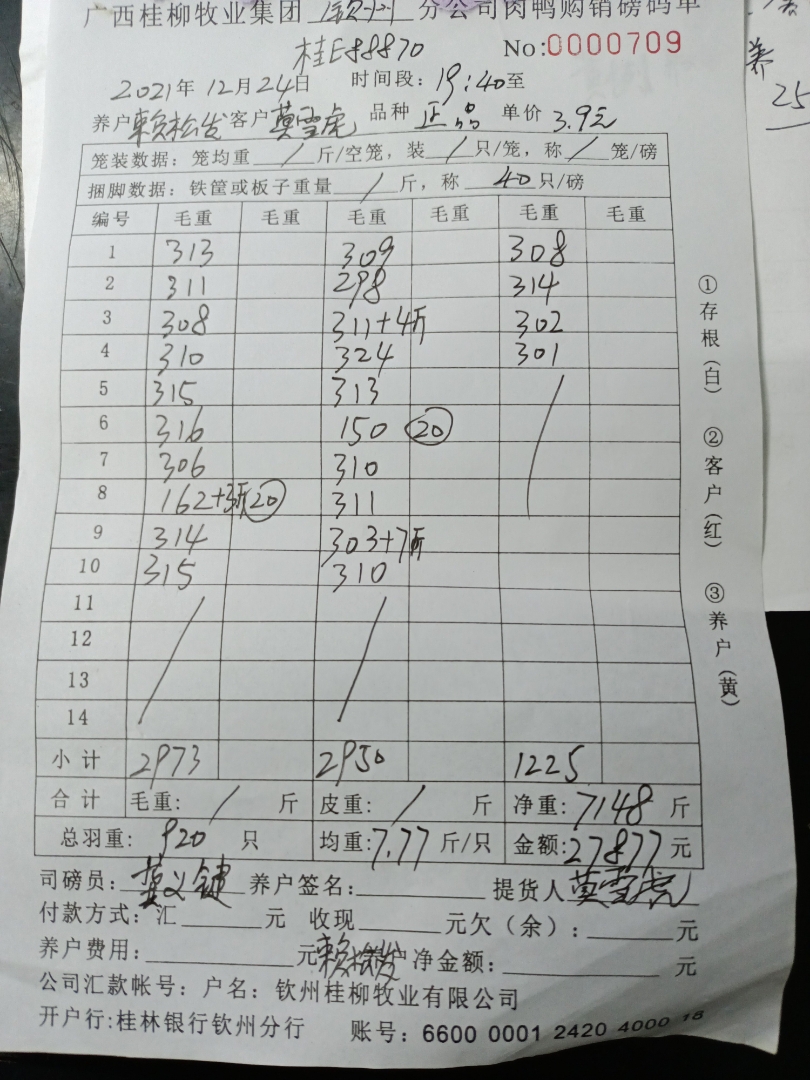 广西桂柳牧业集团 钦州 分公司肉鸭购销磅码单
桂E88870 No:0000709
2021年12月24日 时间段: 19:40至
养户 赖松发 客户 莫雪虎 品种 正品 单价 3.9元
笼装数据: 笼均重 / 斤/空笼, 装 / 只/笼, 称 / 笼/磅
捆脚数据: 铁筐或板子重量 / 斤, 称 40 只/磅
编号 毛重 毛重 毛重 毛重 毛重 毛重
1 313 309 308
2 311 298 314
3 308 311+4斤 302
4 310 324 301
5 315 313
6 316 150 20
7 306 310
8 162+3斤 20 311
9 314 303+7斤
10 315 310
11
12
13
14
小计 2973 2950 1225
合计 毛重: / 斤 皮重: / 斤 净重: 7148 斤
总羽重: 920 只 均重: 7.77 斤/只 金额: 27877 元
司磅员: 养户签名: 提货人 莫雪虎
付款方式: 汇 元 收现 元欠(余): 元
养户费用: 元 赖松发 户净金额: 元
公司汇款帐号: 户名: 钦州桂柳牧业有限公司
开户行:桂林银行钦州分行 账号: 6600 0001 2420 4000 18
①存根(白) ②客户(红) ③养户(黄)
养
25